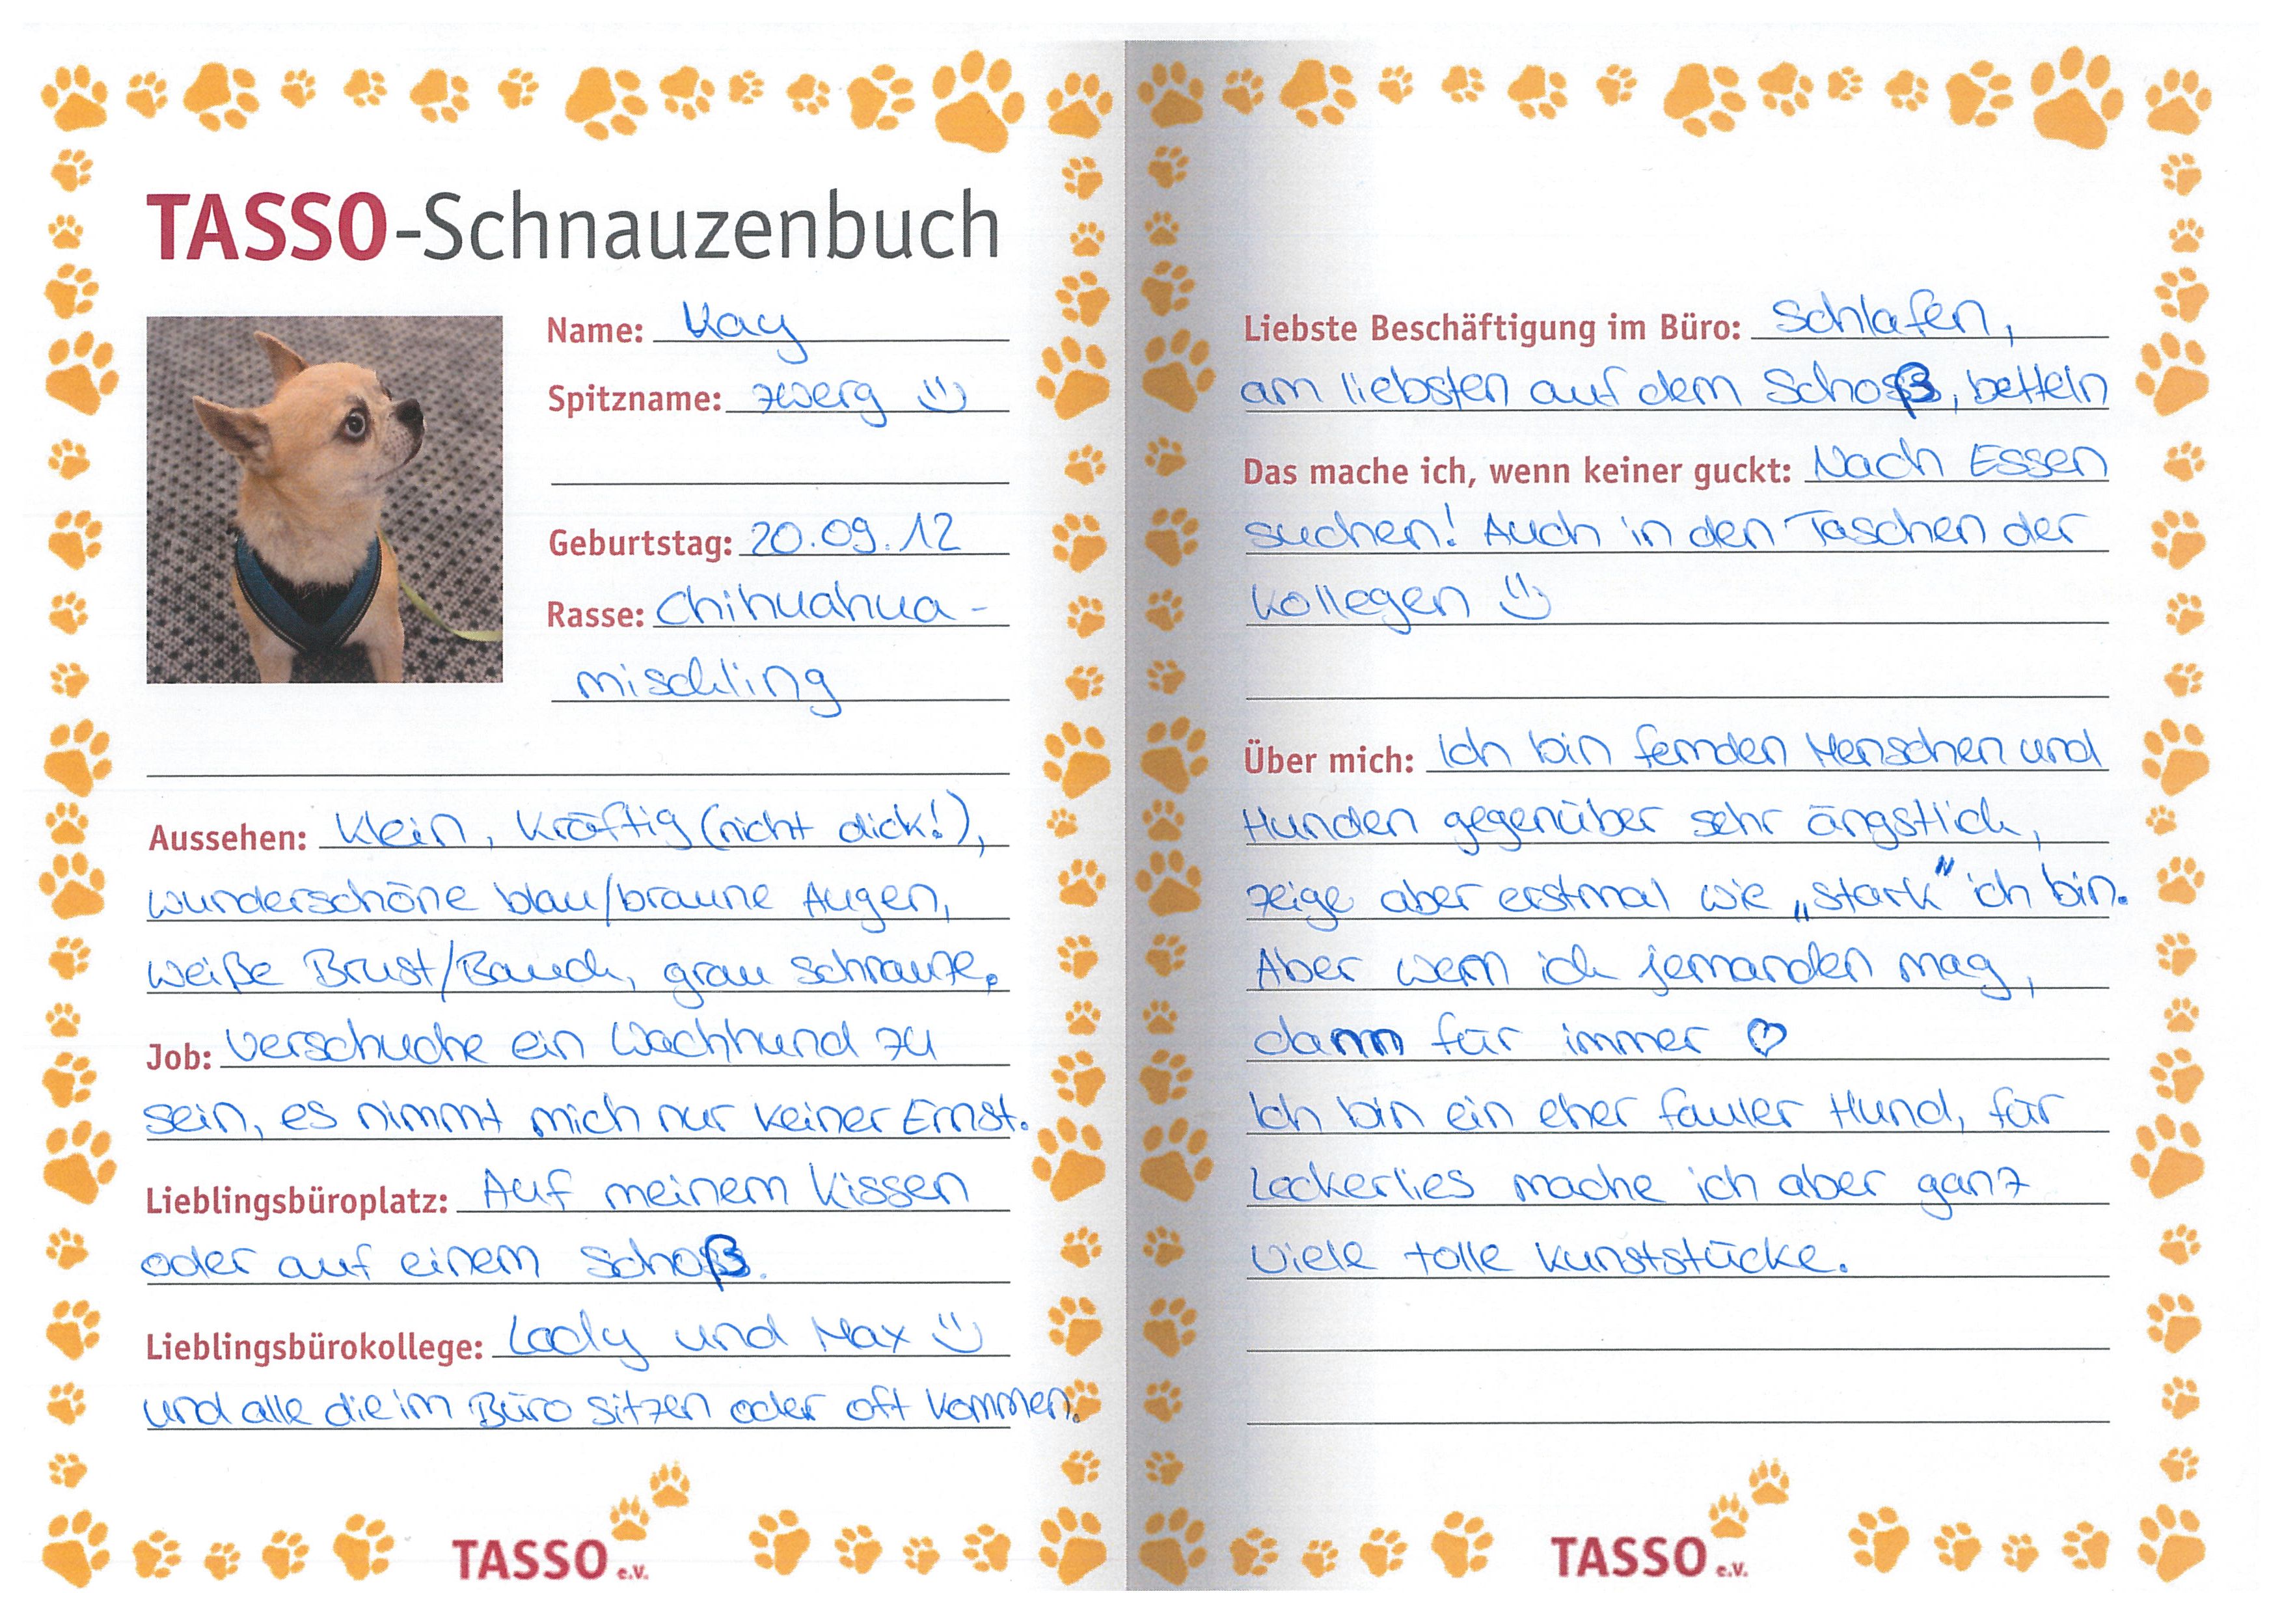 TASSO-Schnauzenbuch
Name: Kay
Spitzname: Zwerg
Geburtstag: 20.09.12
Rasse: Chihuahua-
mischling
Aussehen: Klein, Kräftig (nicht dick!),
wunderschöne blau/braune Augen,
weiße Brust/Bauch, grau schnauze.
Job: Verschuche ein Wachhund zu
sein, es nimmt mich nur keiner Ernst.
Lieblingsbüroplatz: Auf meinem Kissen
oder auf einem Schoß.
Lieblingsbürokollege: Lady und Max
und alle die im Büro sitzen oder oft kommen.
TASSO e.V.
Liebste Beschäftigung im Büro: Schlafen,
am liebsten auf dem Schoß, betteln
Das mache ich, wenn keiner guckt: Nach Essen
suchen! Auch in den Taschen der
Kollegen
Über mich: Ich bin femden Menschen und
Hunden gegenüber sehr ängstlich,
zeige aber erstmal wie „stark" ich bin.
Aber wenn ich jemanden mag,
dann für immer ♡
Ich bin ein eher fauler Hund, für
Leckerlies mache ich aber ganz
viele tolle Kunststücke.
TASSO e.V.